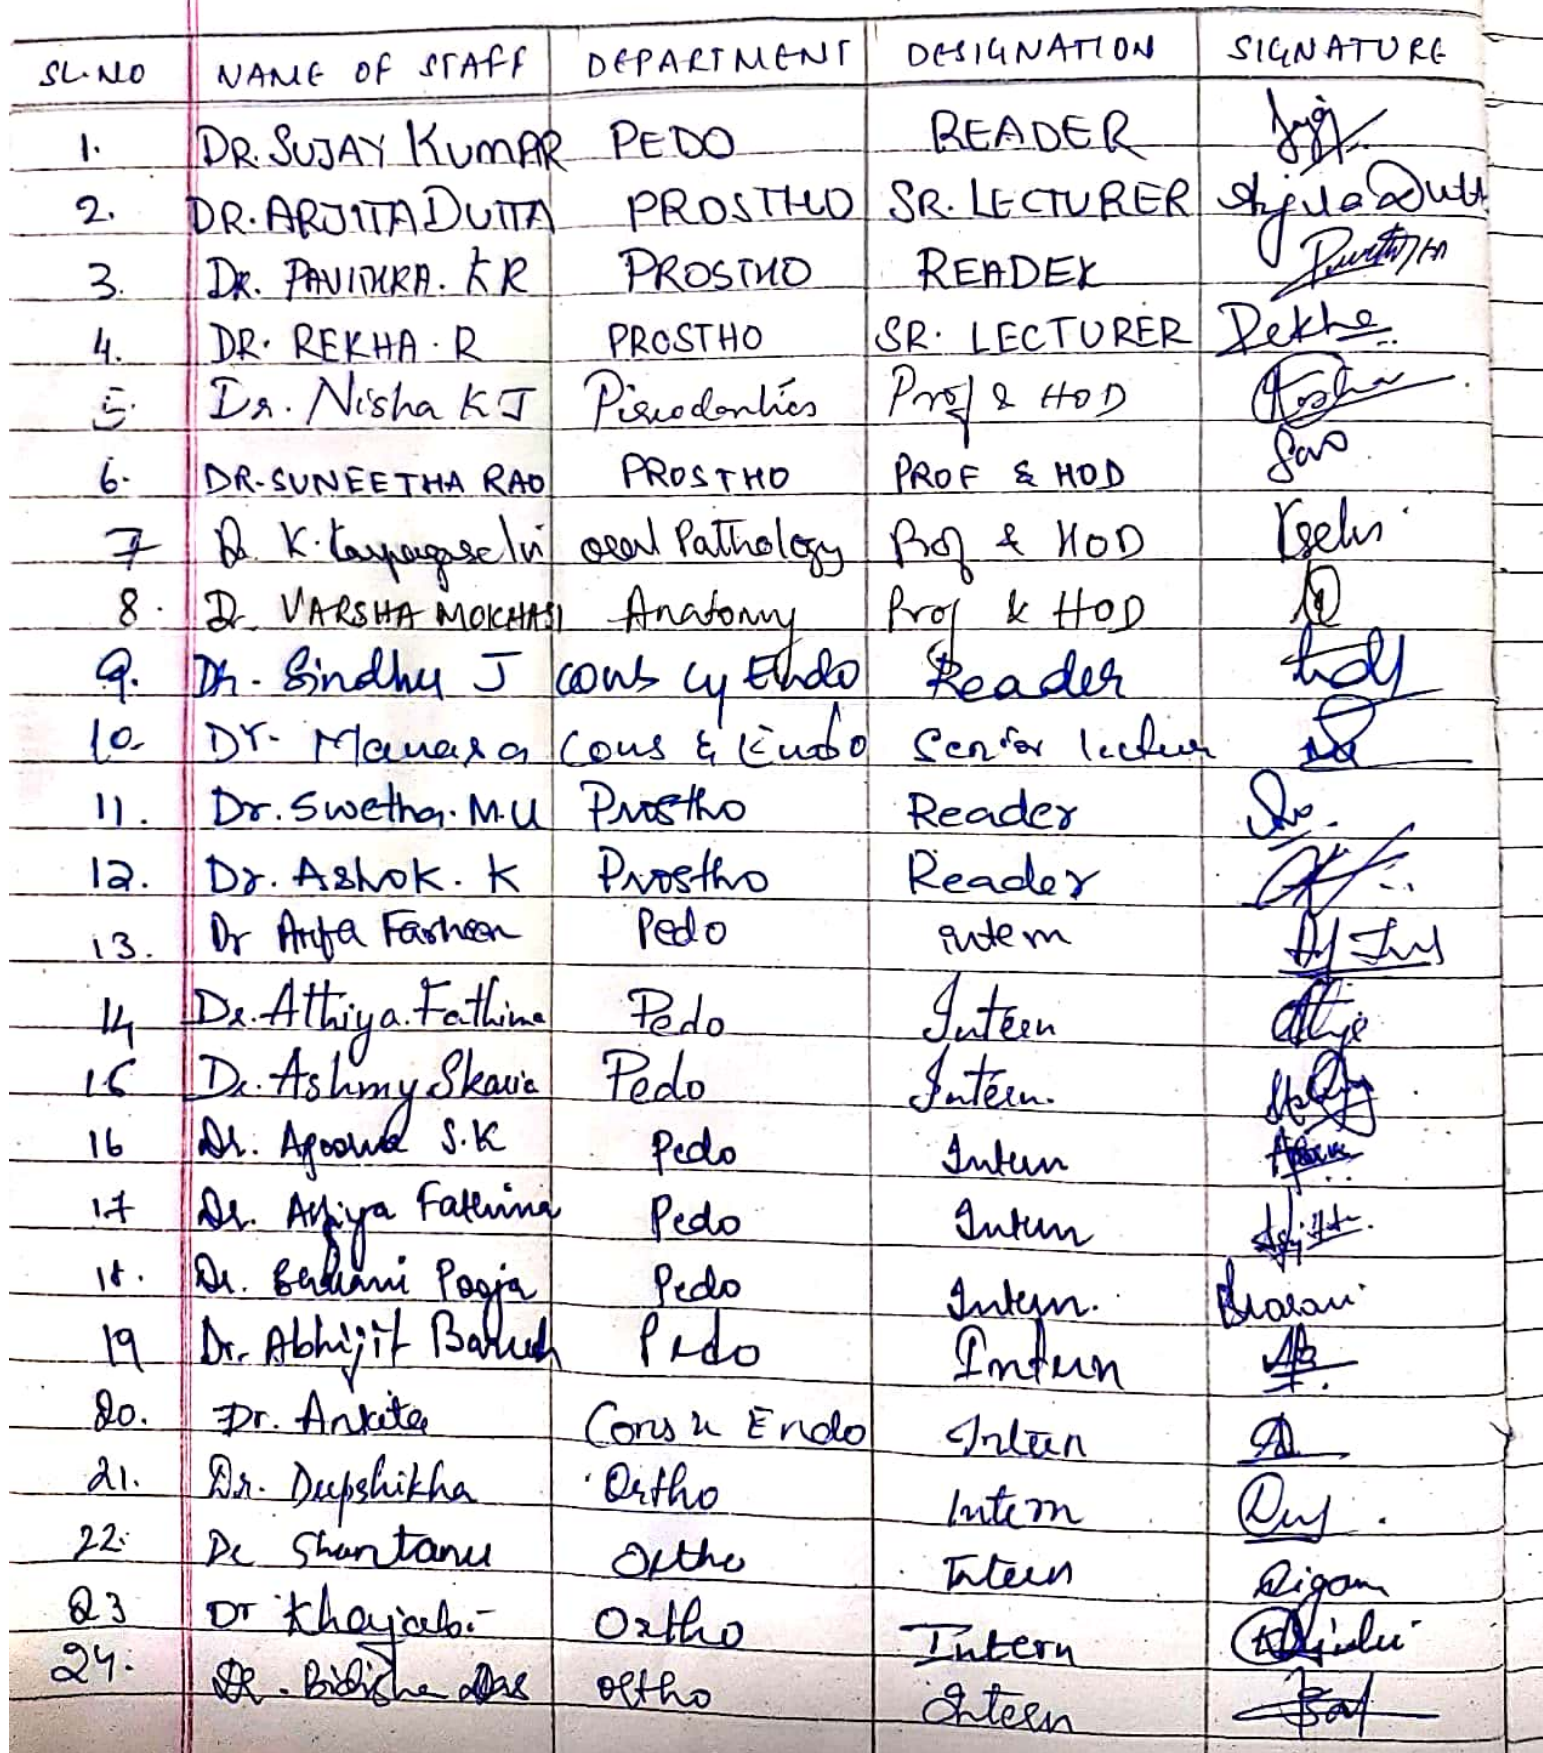 SL.NO NAME OF STAFF DEPARTMENT DESIGNATION SIGNATURE
1. DR. SUJAY KUMAR PEDO READER
2. DR. ARJITA DUTTA PROSTHO SR. LECTURER Arjita Dutta
3. DR. PAVITHRA. K R PROSTHO READER
4. DR. REKHA. R PROSTHO SR. LECTURER Rekha
5. Dr. Nisha K J Periodontics Prof & HOD
6. DR. SUNEETHA RAO PROSTHO PROF & HOD
7 Dr K. Karpagaselvi oral Pathology Prof & HOD Kselvi
8. Dr. VARSHA MOKHASI Anatomy Prof & HOD
9. Dr. Sindhu J cons & Endo Reader
10. Dr. Manasa Cons & Endo Senior lecturer
11. Dr. Swetha. M.U Prostho Reader
12. Dr. Ashok. K Prostho Reader
13. Dr Arfa Farheen Pedo intern
14 Dr. Athiya. Fathima Pedo Intern
15 Dr. Ashmy Skaria Pedo Intern.
16 Dr. Apoorva S.K Pedo Intern
17 Dr. Fathima Pedo Intern
18. Dr. Pooja Pedo Intern.
19 Dr. Abhijit Baruah Pedo Intern
20. Dr. Ankita Cons & Endo Intern
21. Dr. Deepshikha Ortho Intern
22. Dr Shantanu Ortho Intern
23 Dr Khajabi Ortho Intern
24. Dr. Bidisha Das Ortho Intern